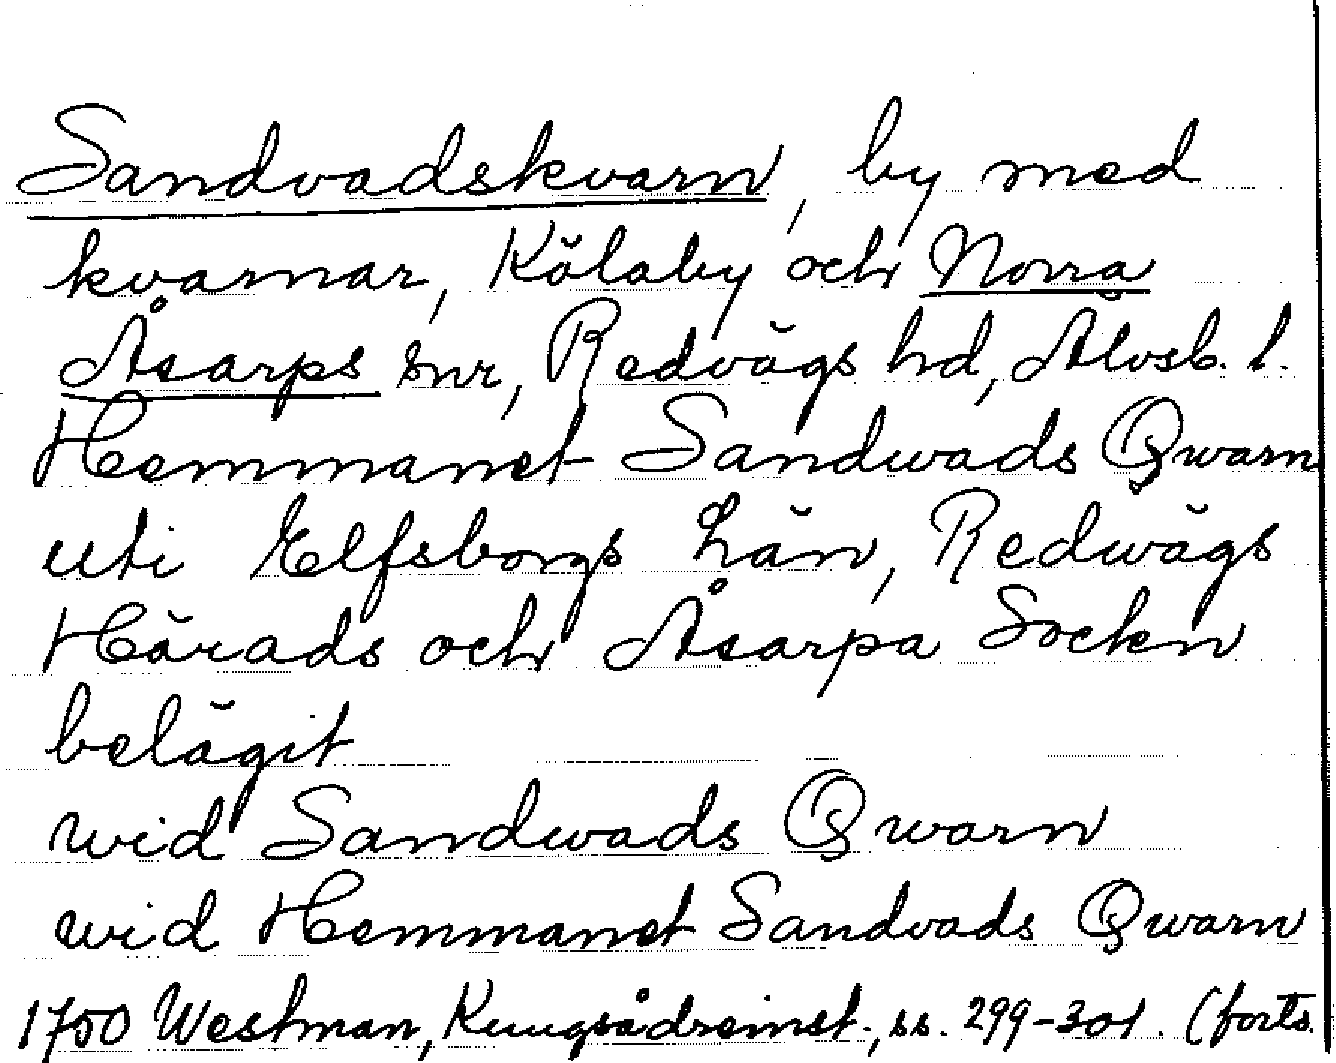 Sandvadskvarn, by med
kvarnar, Kölaby och Norra
Åsarps snr, Redvägs hd, Älvsb. l.
Hemmanet Sandwads Qwarn
uti Elfsborgs Län, Redwägs
Härads och Åsarpa Sockn
belägit
wid Sandwads Qwarn
wid Hemmanet Sandvads Qwarn
1750 Westman, Kungsådreinst., ss. 299-301. (forts.